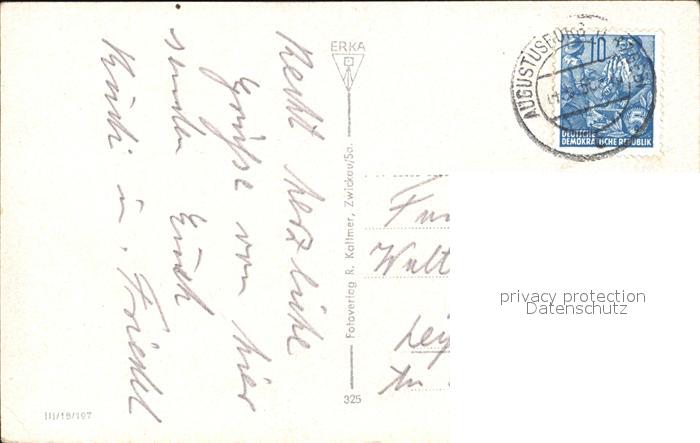 Recht herzliche
Grüße von hier
senden Euch
u. Friedel
ERKA
Fotoverlag R. Kallmer, Zwickau/Sa.
325
III/18/197
AUGUSTUSBURG
10
5
DEUTSCHE
DEMOKRATISCHE REPUBLIK
privacy protection
Datenschutz